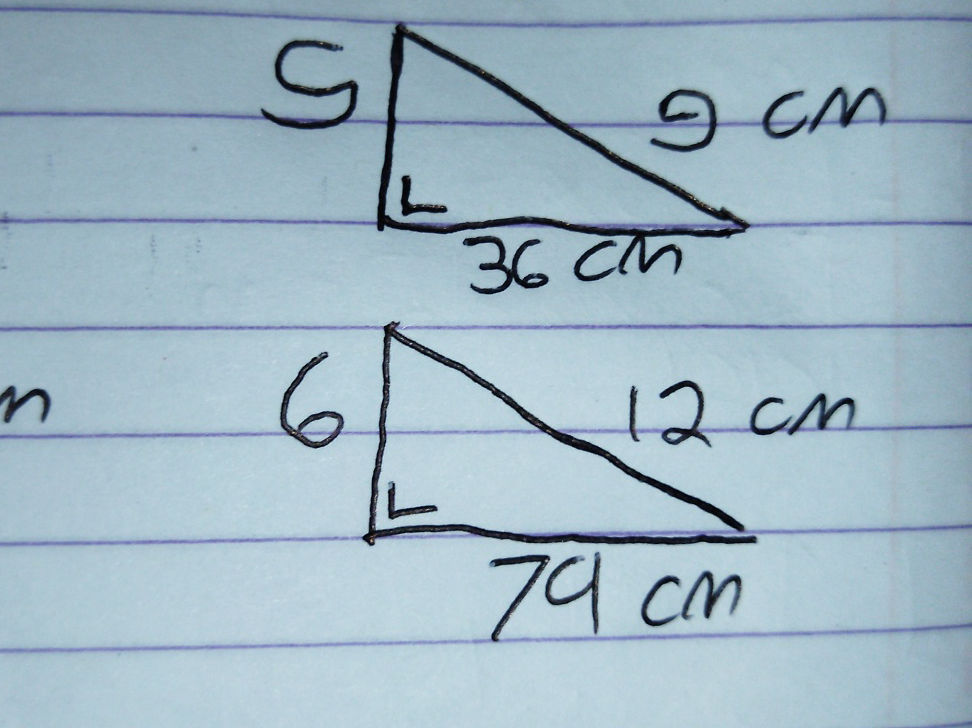 5 9 cm
36 cm
m 6 12 cm
79 cm